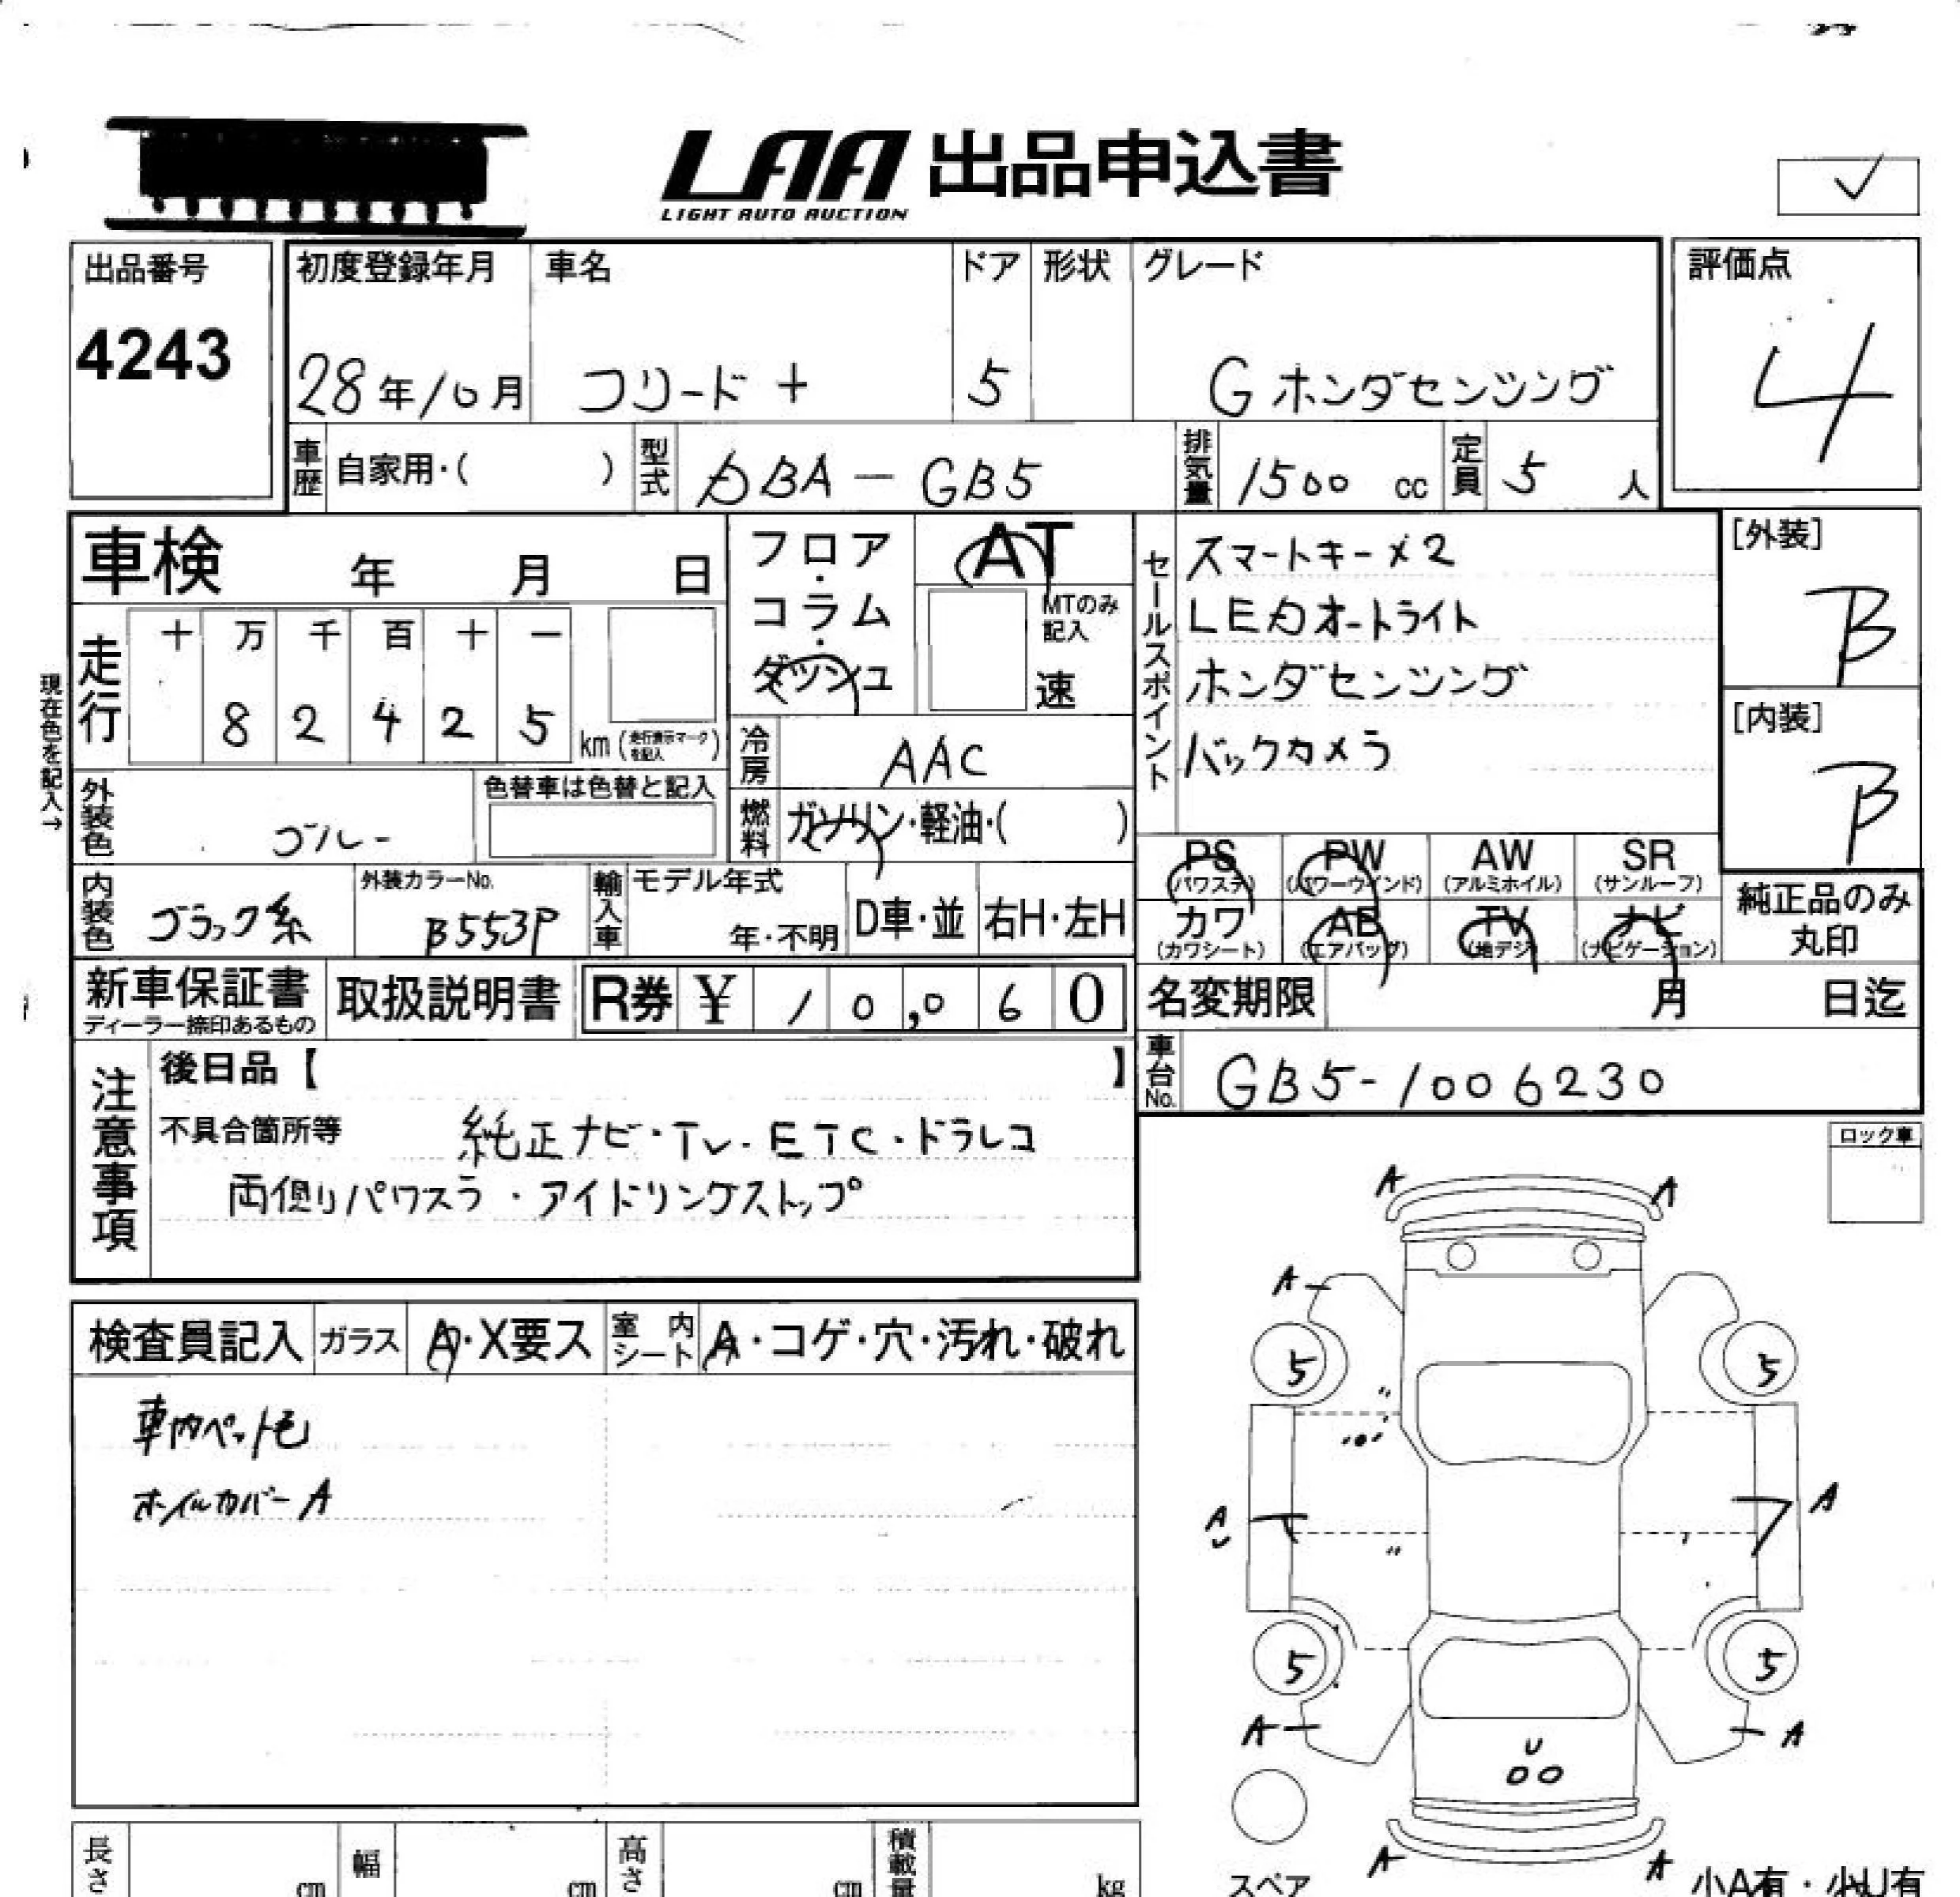 LAA 出品申込書
LIGHT AUTO AUCTION
出品番号
4243
初度登録年月
28年10月
車名
フリード+
ドア
5
形状
グレード
G ホンダセンシング
評価点
4
車歴 自家用・( )
型式 DBA-GB5
排気量 1500 cc
定員 5 人
車検 年 月 日
フロア・コラム・ダッシュ
AT
MTのみ記入
速
走行
十 万 千 百 十 一
8 2 4 2 5 km (走行表示マークを記入)
現在色を記入→
外装色 ブルー
色替車は色替と記入
冷房 AAC
燃料 ガソリン・軽油・( )
内装色 ブラック系
外装カラーNo. B553P
輸入車 モデル年式
年・不明
D車・並
右H・左H
セールスポイント
スマートキー×2
LEDオートライト
ホンダセンシング
バックカメラ
[外装]
B
[内装]
B
PS (パワステ)
PW (パワーウインド)
AW (アルミホイル)
SR (サンルーフ)
カワ (カワシート)
AB (エアバッグ)
TV (地デジ)
ナビ (ナビゲーション)
純正品のみ丸印
新車保証書
ディーラー捺印あるもの
取扱説明書
R券 ¥ 10,060
名変期限 月 日迄
車台No. GB5-1006230
注意事項
後日品【 】
不具合箇所等 純正ナビ・TV・ETC・ドラレコ
両側りパワスラ・アイドリングストップ
ロック車
検査員記入
ガラス A・X要ス
室内シート A・コゲ・穴・汚れ・破れ
車内ペット毛
ホイルカバーA
A A
A
5 5
A A
5 5
A A
U
A A
スペア
小A有・小U有
長さ cm
幅 cm
高さ cm
積載量 kg